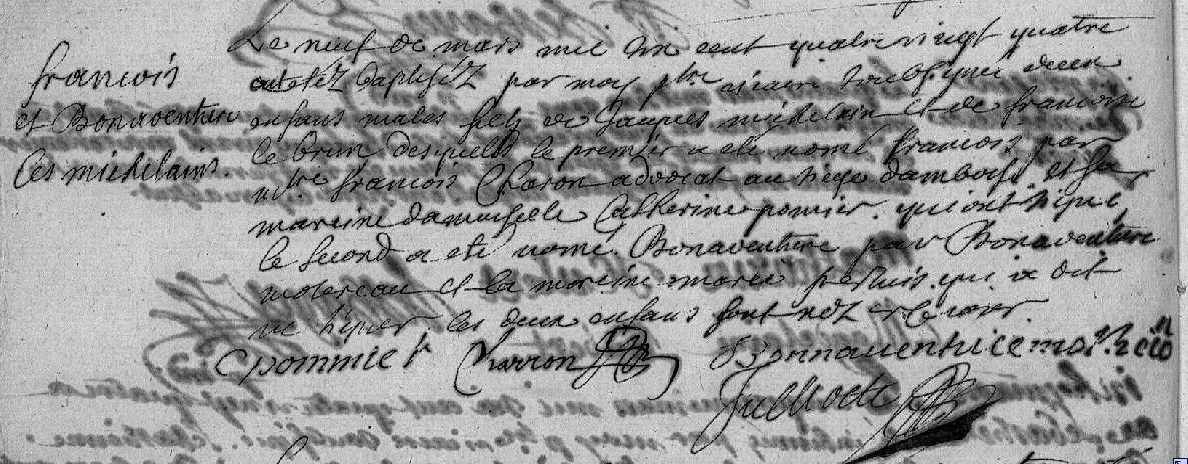 francois
et Bonaventure
les michelains.
Le neuf de mars mil six cent quatre vingt quatre
ont étéz baptiséz par moy ptre vicaire soubsigné deux
enfans males filz de Jacques michelain et de francoise
le brun desquels le premier a eté nomé francois par
mtre francois Charon advocat au siege damboise et sa
mareine damoiselle Catherine pomier. qui ont signé,
le second a eté nomé Bonaventure par Bonaventure
moreau et la mareine marie qui a dit
ne signer. les deux enfans sont nez ce jour.
Cpommier Charron Bonnaventure